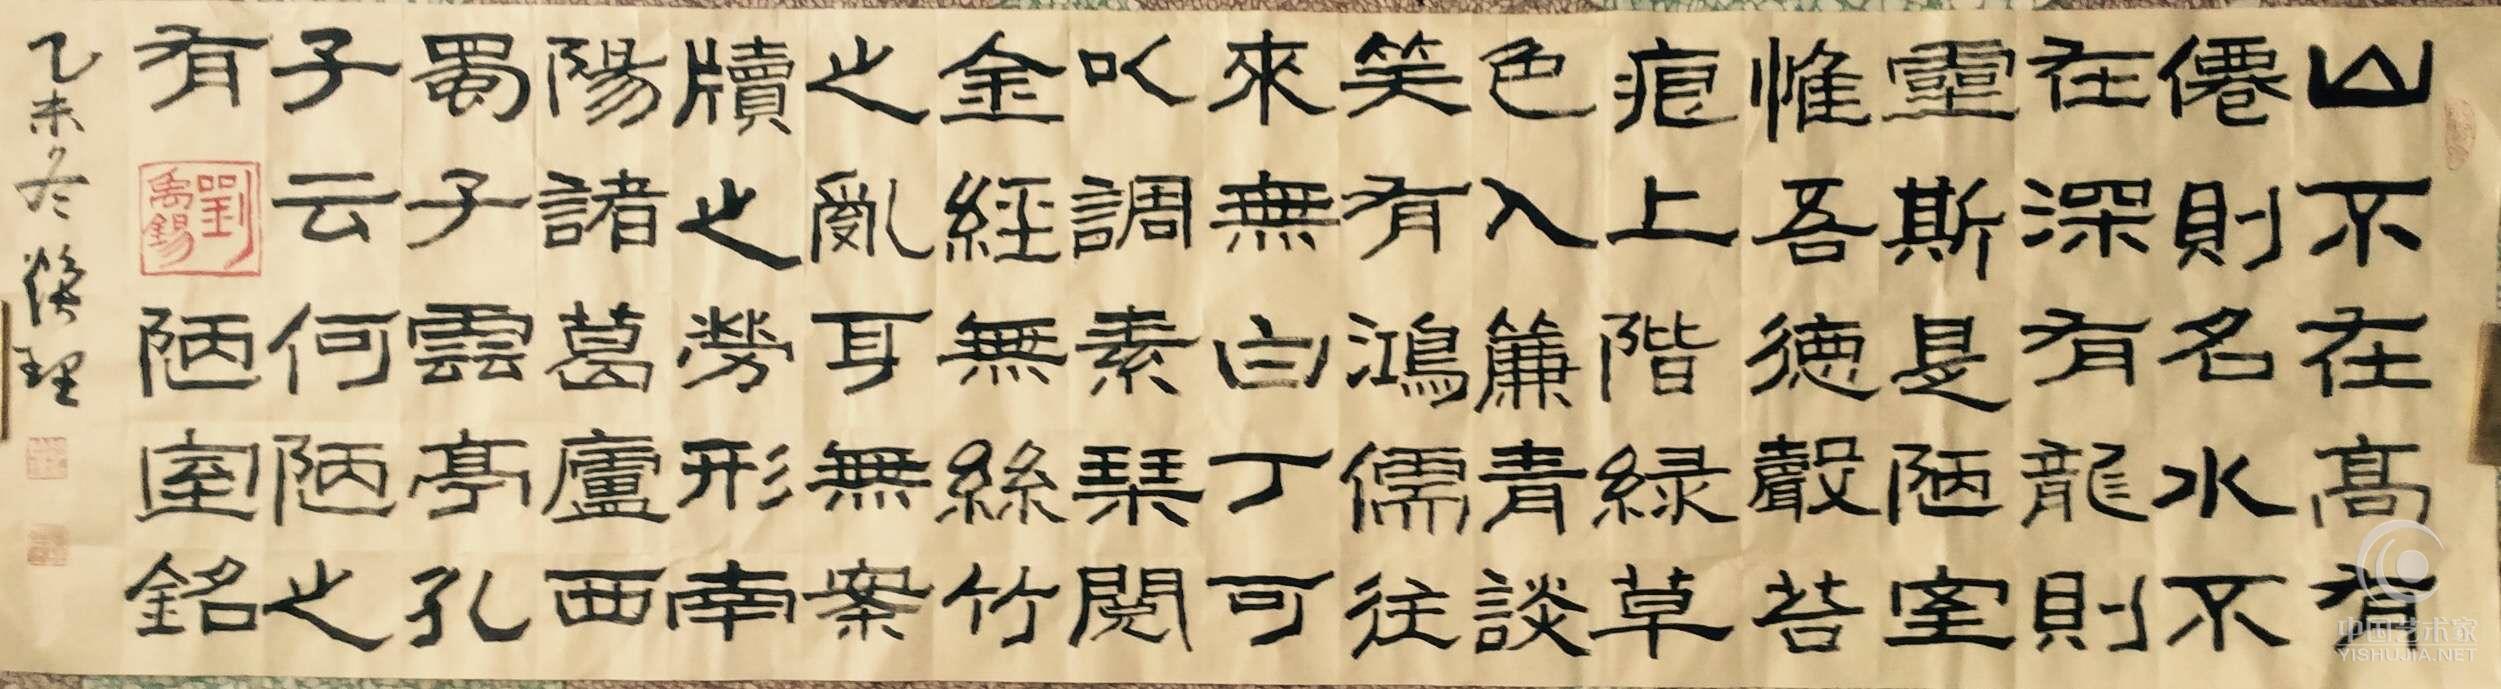 山不在高有
僊則名水不
在深有龍則
靈斯是陋室
惟吾德馨苔
痕上階緑草
色入簾青談
笑有鴻儒往
來無白丁可
以調素琴閱
金經無絲竹
之亂耳無案
牘之勞形南
陽諸葛廬西
蜀子雲亭孔
子云何陋之
有
劉禹錫
陋室銘
乙未冬
理
中国艺术家
YISHUJIA.NET